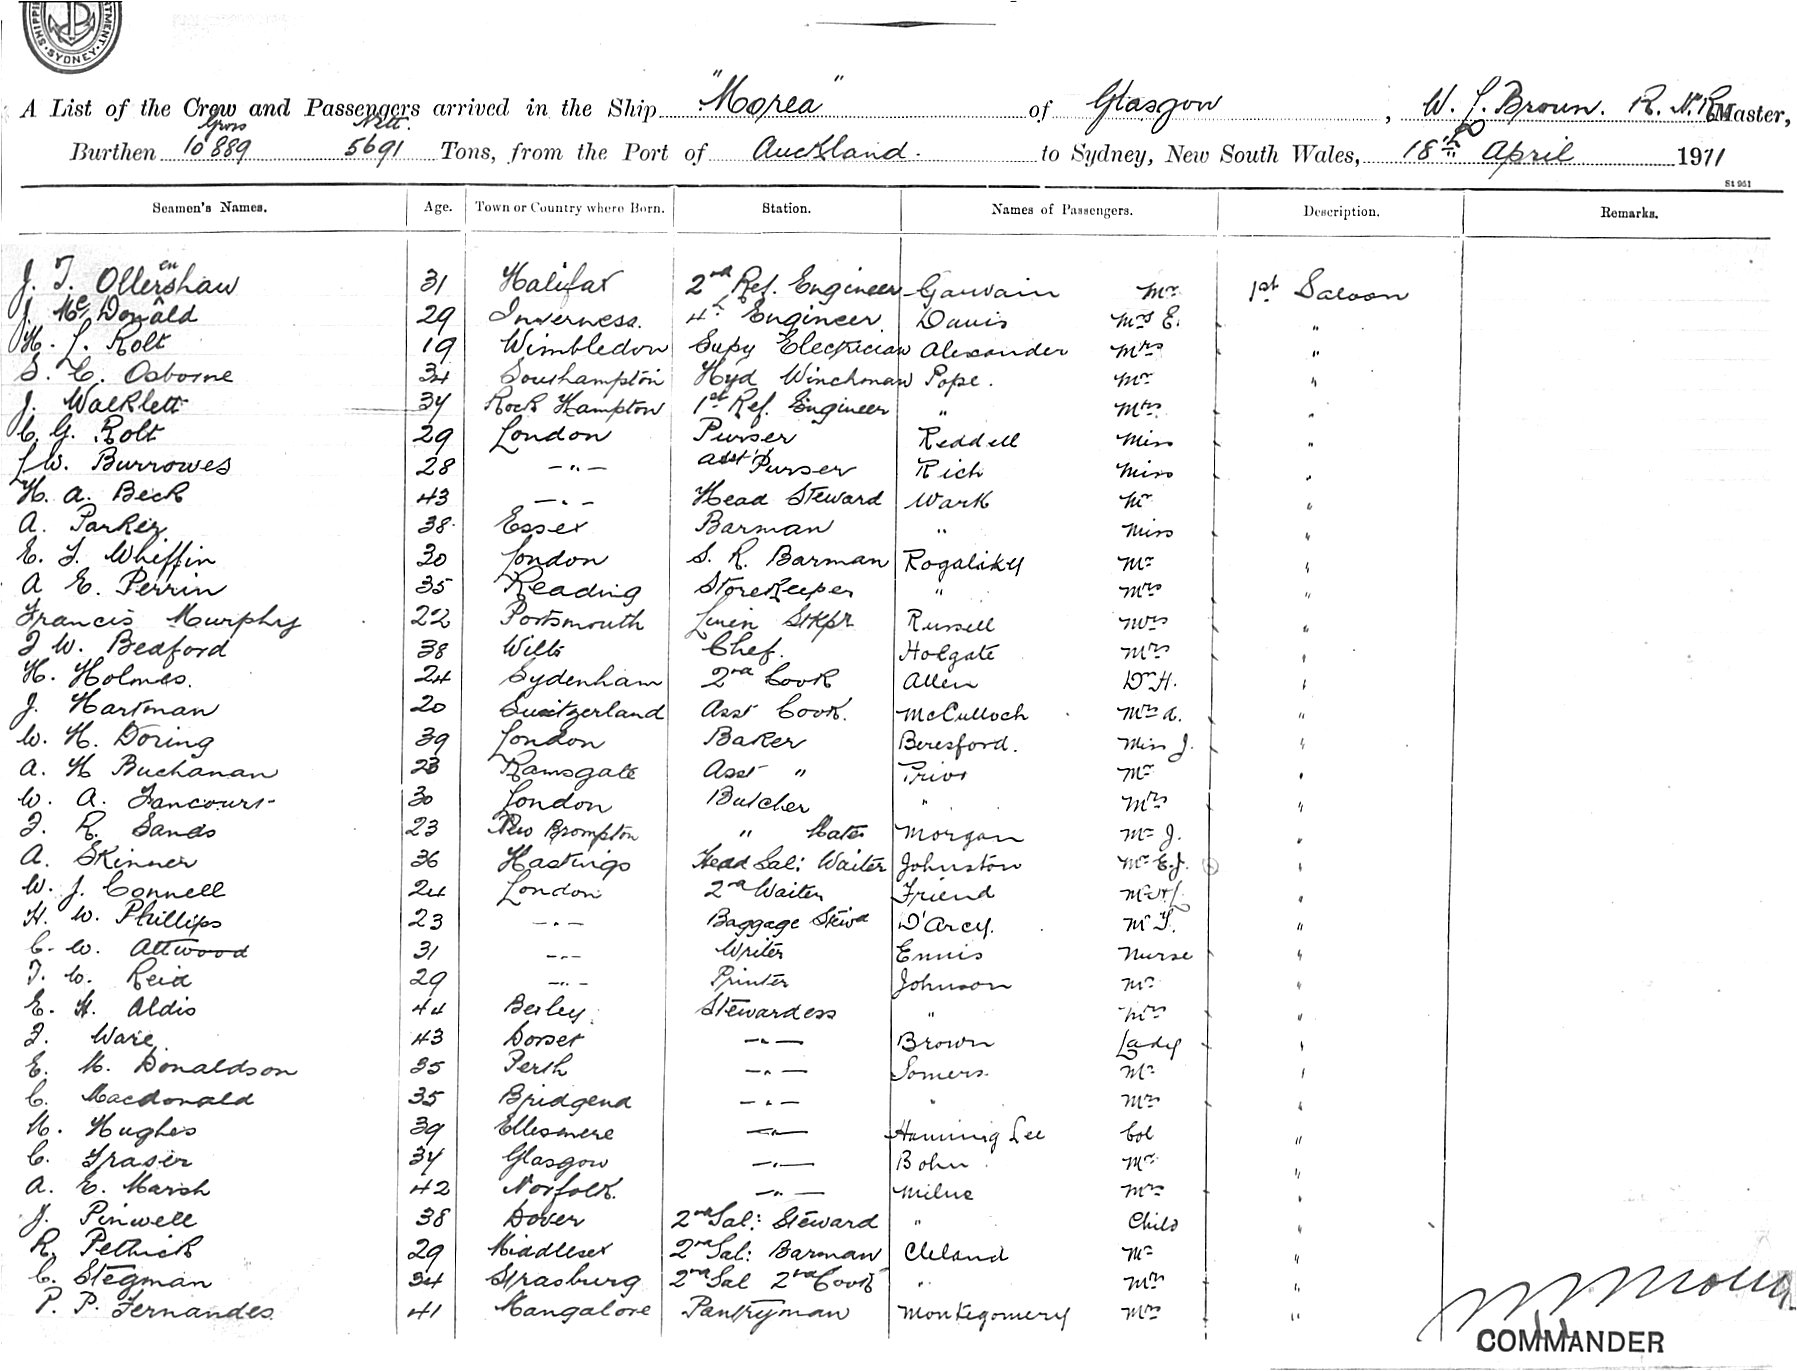 SHIPPI
RTMENT
SYDNEY
A List of the Crew and Passengers arrived in the Ship "Morea" of Glasgow, W. L. Broun. R.N.R. Master,
Gross Nett.
Burthen 10889 5691 Tons, from the Port of Auckland. to Sydney, New South Wales, 18th April 1911
St 951
Seamen's Names. Age. Town or Country where Born. Station. Names of Passengers. Description. Remarks.
en
J. T. Ollershaw 31 Halifax 2nd Ref. Engineer Gawain Mr 1st Saloon
J. McDonald 29 Inverness. 4th Engineer Davis Mrs E. "
H. L. Rolt 19 Wimbledon Supy Electrician Alexander Mrs "
S. C. Osborne 34 Southampton Hyd Winchman Pope. Mr "
J. Walklett 34 Rock Hampton 1st Ref. Engineer " Mrs "
C. G. Rolt 29 London Purser Reddell Miss "
L W. Burrowes 28 — " — Asst Purser Rich Miss "
H. A. Beck 43 — " — Head Steward Wark Mr "
A. Parker 38 Essex Barman " Miss "
E. J. Whiffin 30 London S. R. Barman Rogalsky Mr "
A E. Perrin 35 Reading Storekeeper " Mrs "
Francis Murphy 22 Portsmouth Linen Stkpr Russell Mrs "
J W. Bedford 38 Wilts Chef. Holgate Mrs "
H. Holmes. 24 Sydenham 2nd Cook Allen Dr H. "
J. Hartman 20 Switzerland Asst Cook. McCulloch Mrs A. "
W. H. Doring 39 London Baker Beresford. Miss J. "
A. H Buchanan 23 Ramsgate Asst " Prior Mr "
W. A. Fancourt 30 London Butcher " Mrs "
J. R. Sands 23 New Brompton " Mate Morgan Mr J. "
A. Skinner 36 Hastings Head Sal: Waiter Johnston Mr E.J. "
W. J. Connell 24 London 2nd Waiter Friend Mr "
H. W. Phillips 23 — " — Baggage Stewd D'Arcy. Mr T. "
C. W. Attwood 31 — " — Writer Ennis Nurse "
T. C. Reid 29 — " — Printer Johnson Mr "
E. H. Aldis 44 Bexley Stewardess " Mrs "
J. Ware 43 Dorset — " — Brown Lady "
E. M. Donaldson 35 Perth — " — Somers. Mr "
C. Macdonald 35 Bridgend — " — " Mrs "
M. Hughes 39 Ellesmere — " — Hanning Lee Col "
C. Fraser 34 Glasgow — " — Bohn Mr "
A. E. Marsh 42 Norfolk. — " — Milne Mrs "
J. Pinwell 38 Dover 2nd Sal: Steward " Child "
R. Pethick 29 Middlesex 2nd Sal: Barman Cleland Mr "
C. Stegman 34 Strasburg 2nd Sal 2nd Cook " Mrs "
P. P. Fernandes 41 Mangalore Pantryman Montgomery Mrs "
COMMANDER